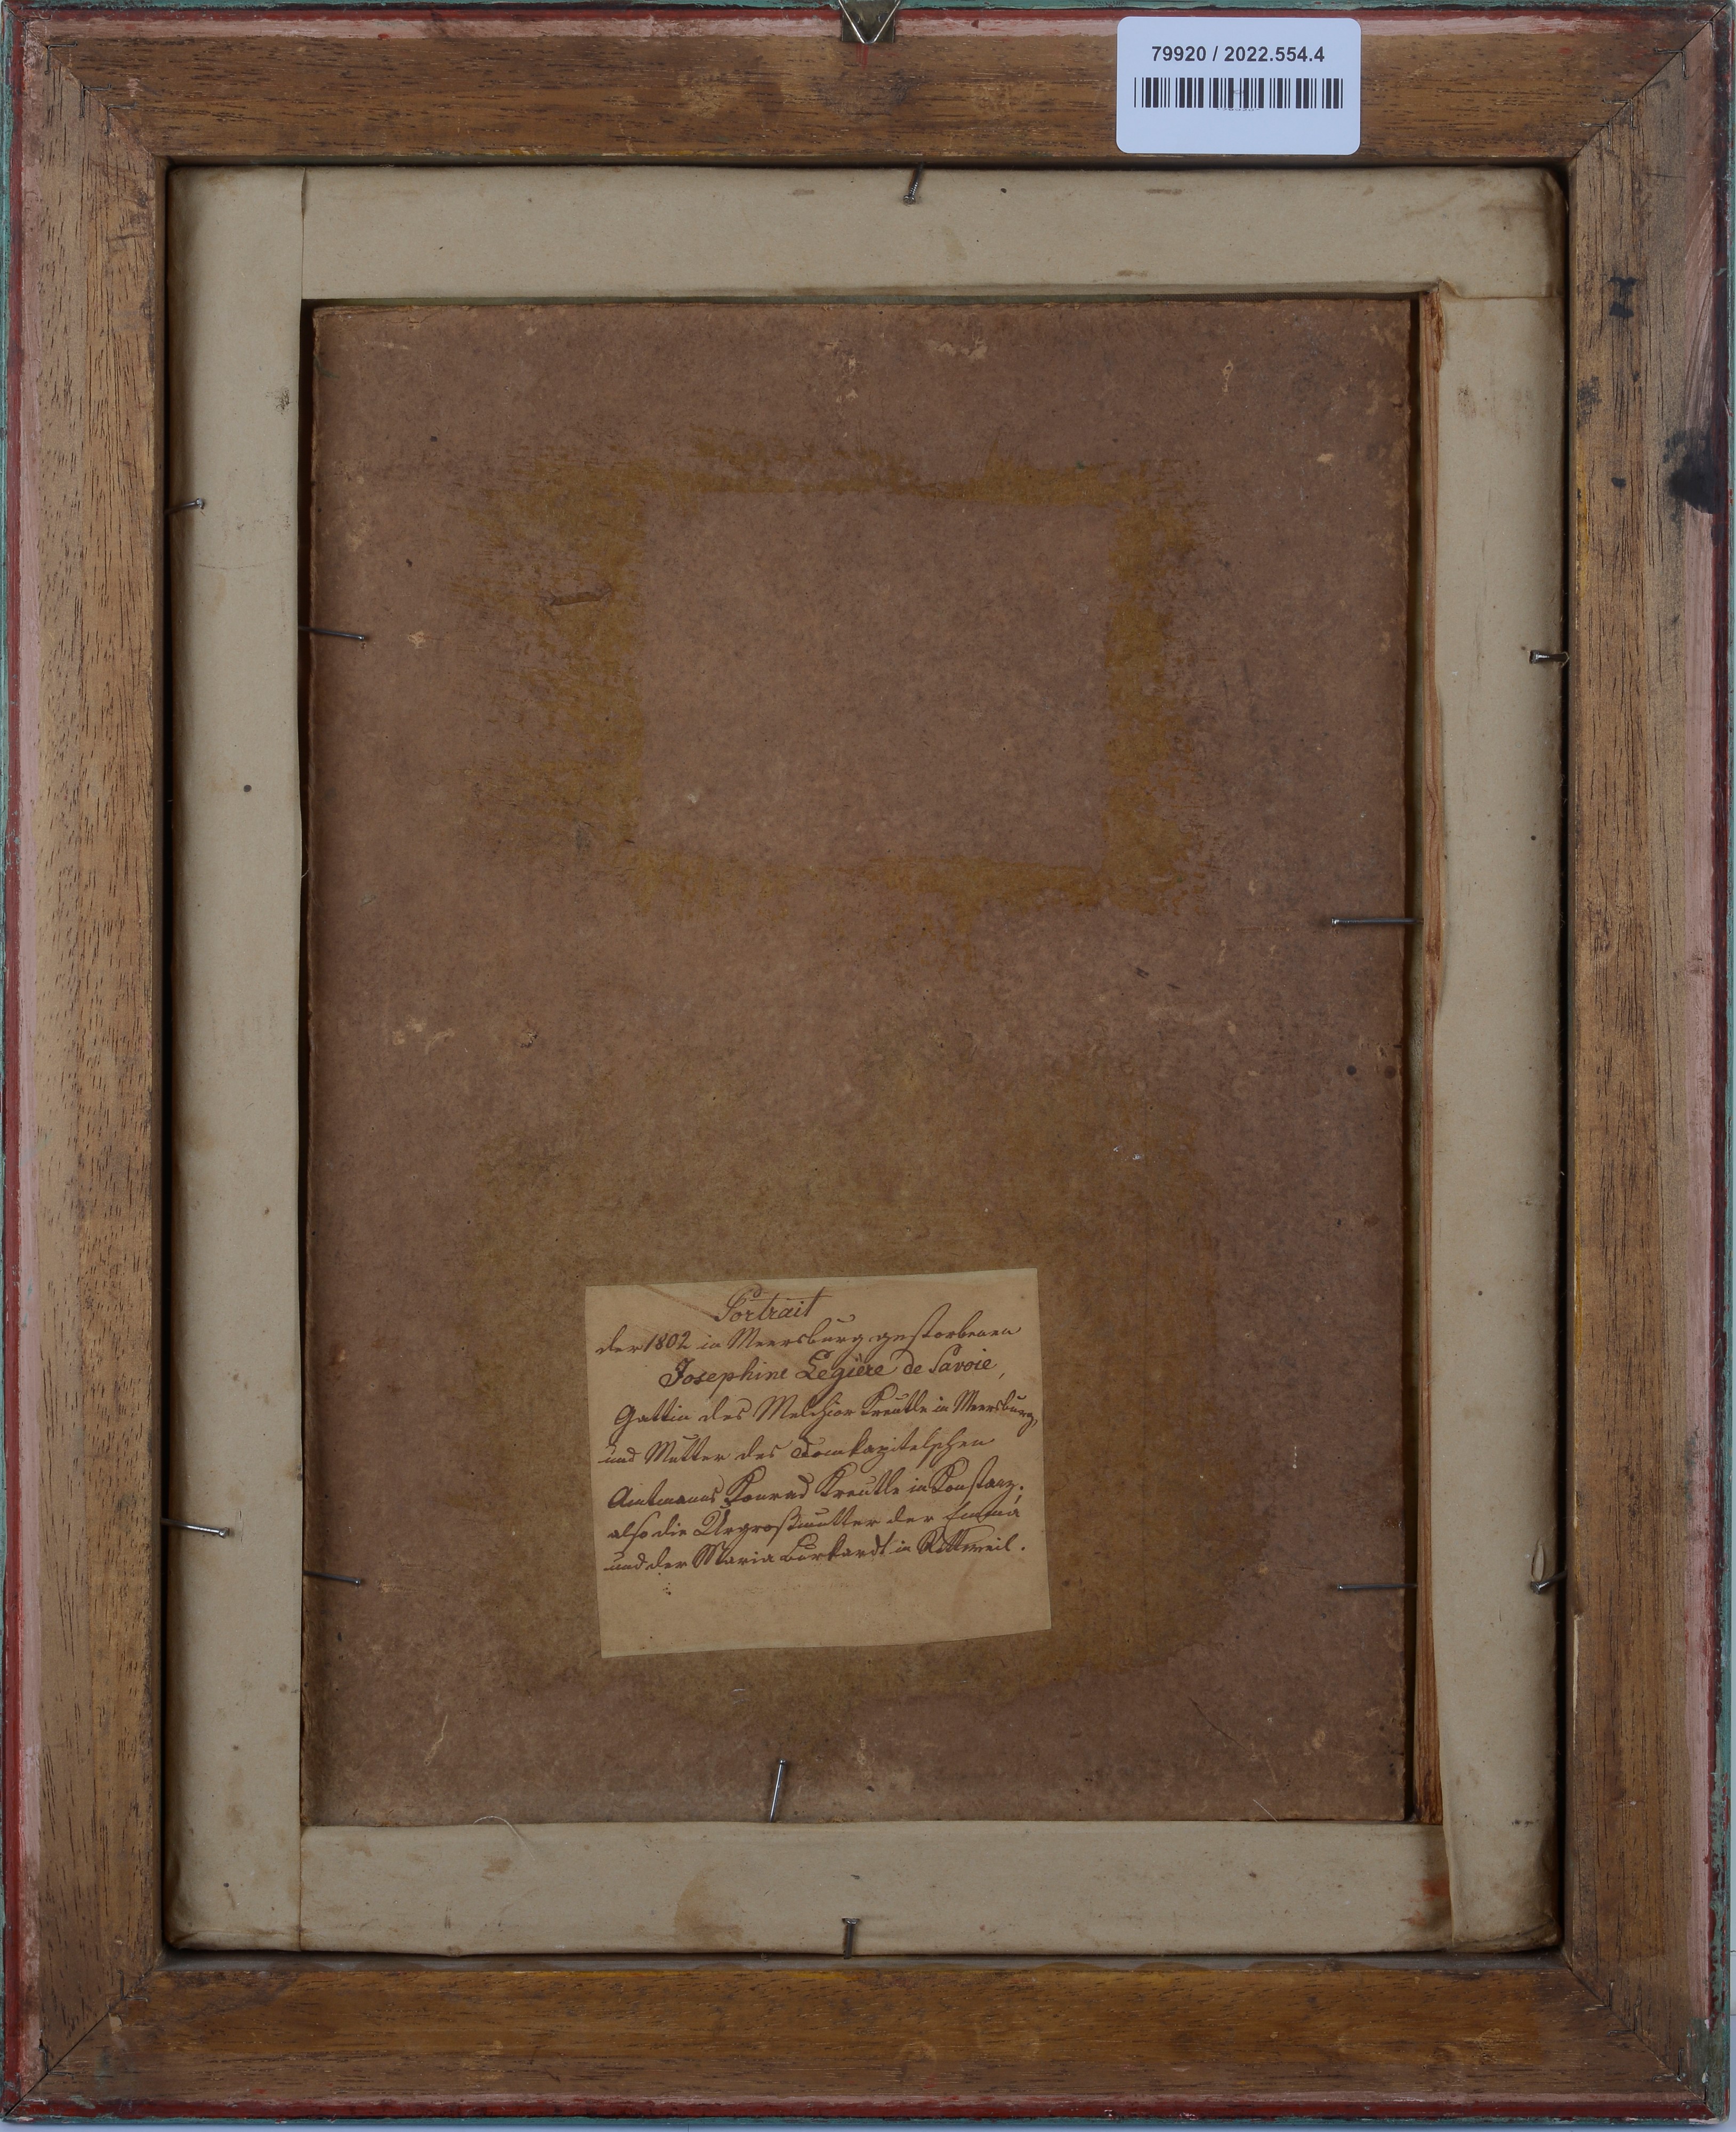 79920 / 2022.554.4
Portrait
der 1802 in Meersburg gestorbenen
Josephine Legière de Savoie,
Gattin des Melchior Kreutle in Meersburg,
und Mutter des Domkapitelschen
Amtmanns Konrad Kreutle in Konstanz;
also die Urgroßmutter der Emma
und der Maria Burkardt in Rottweil.